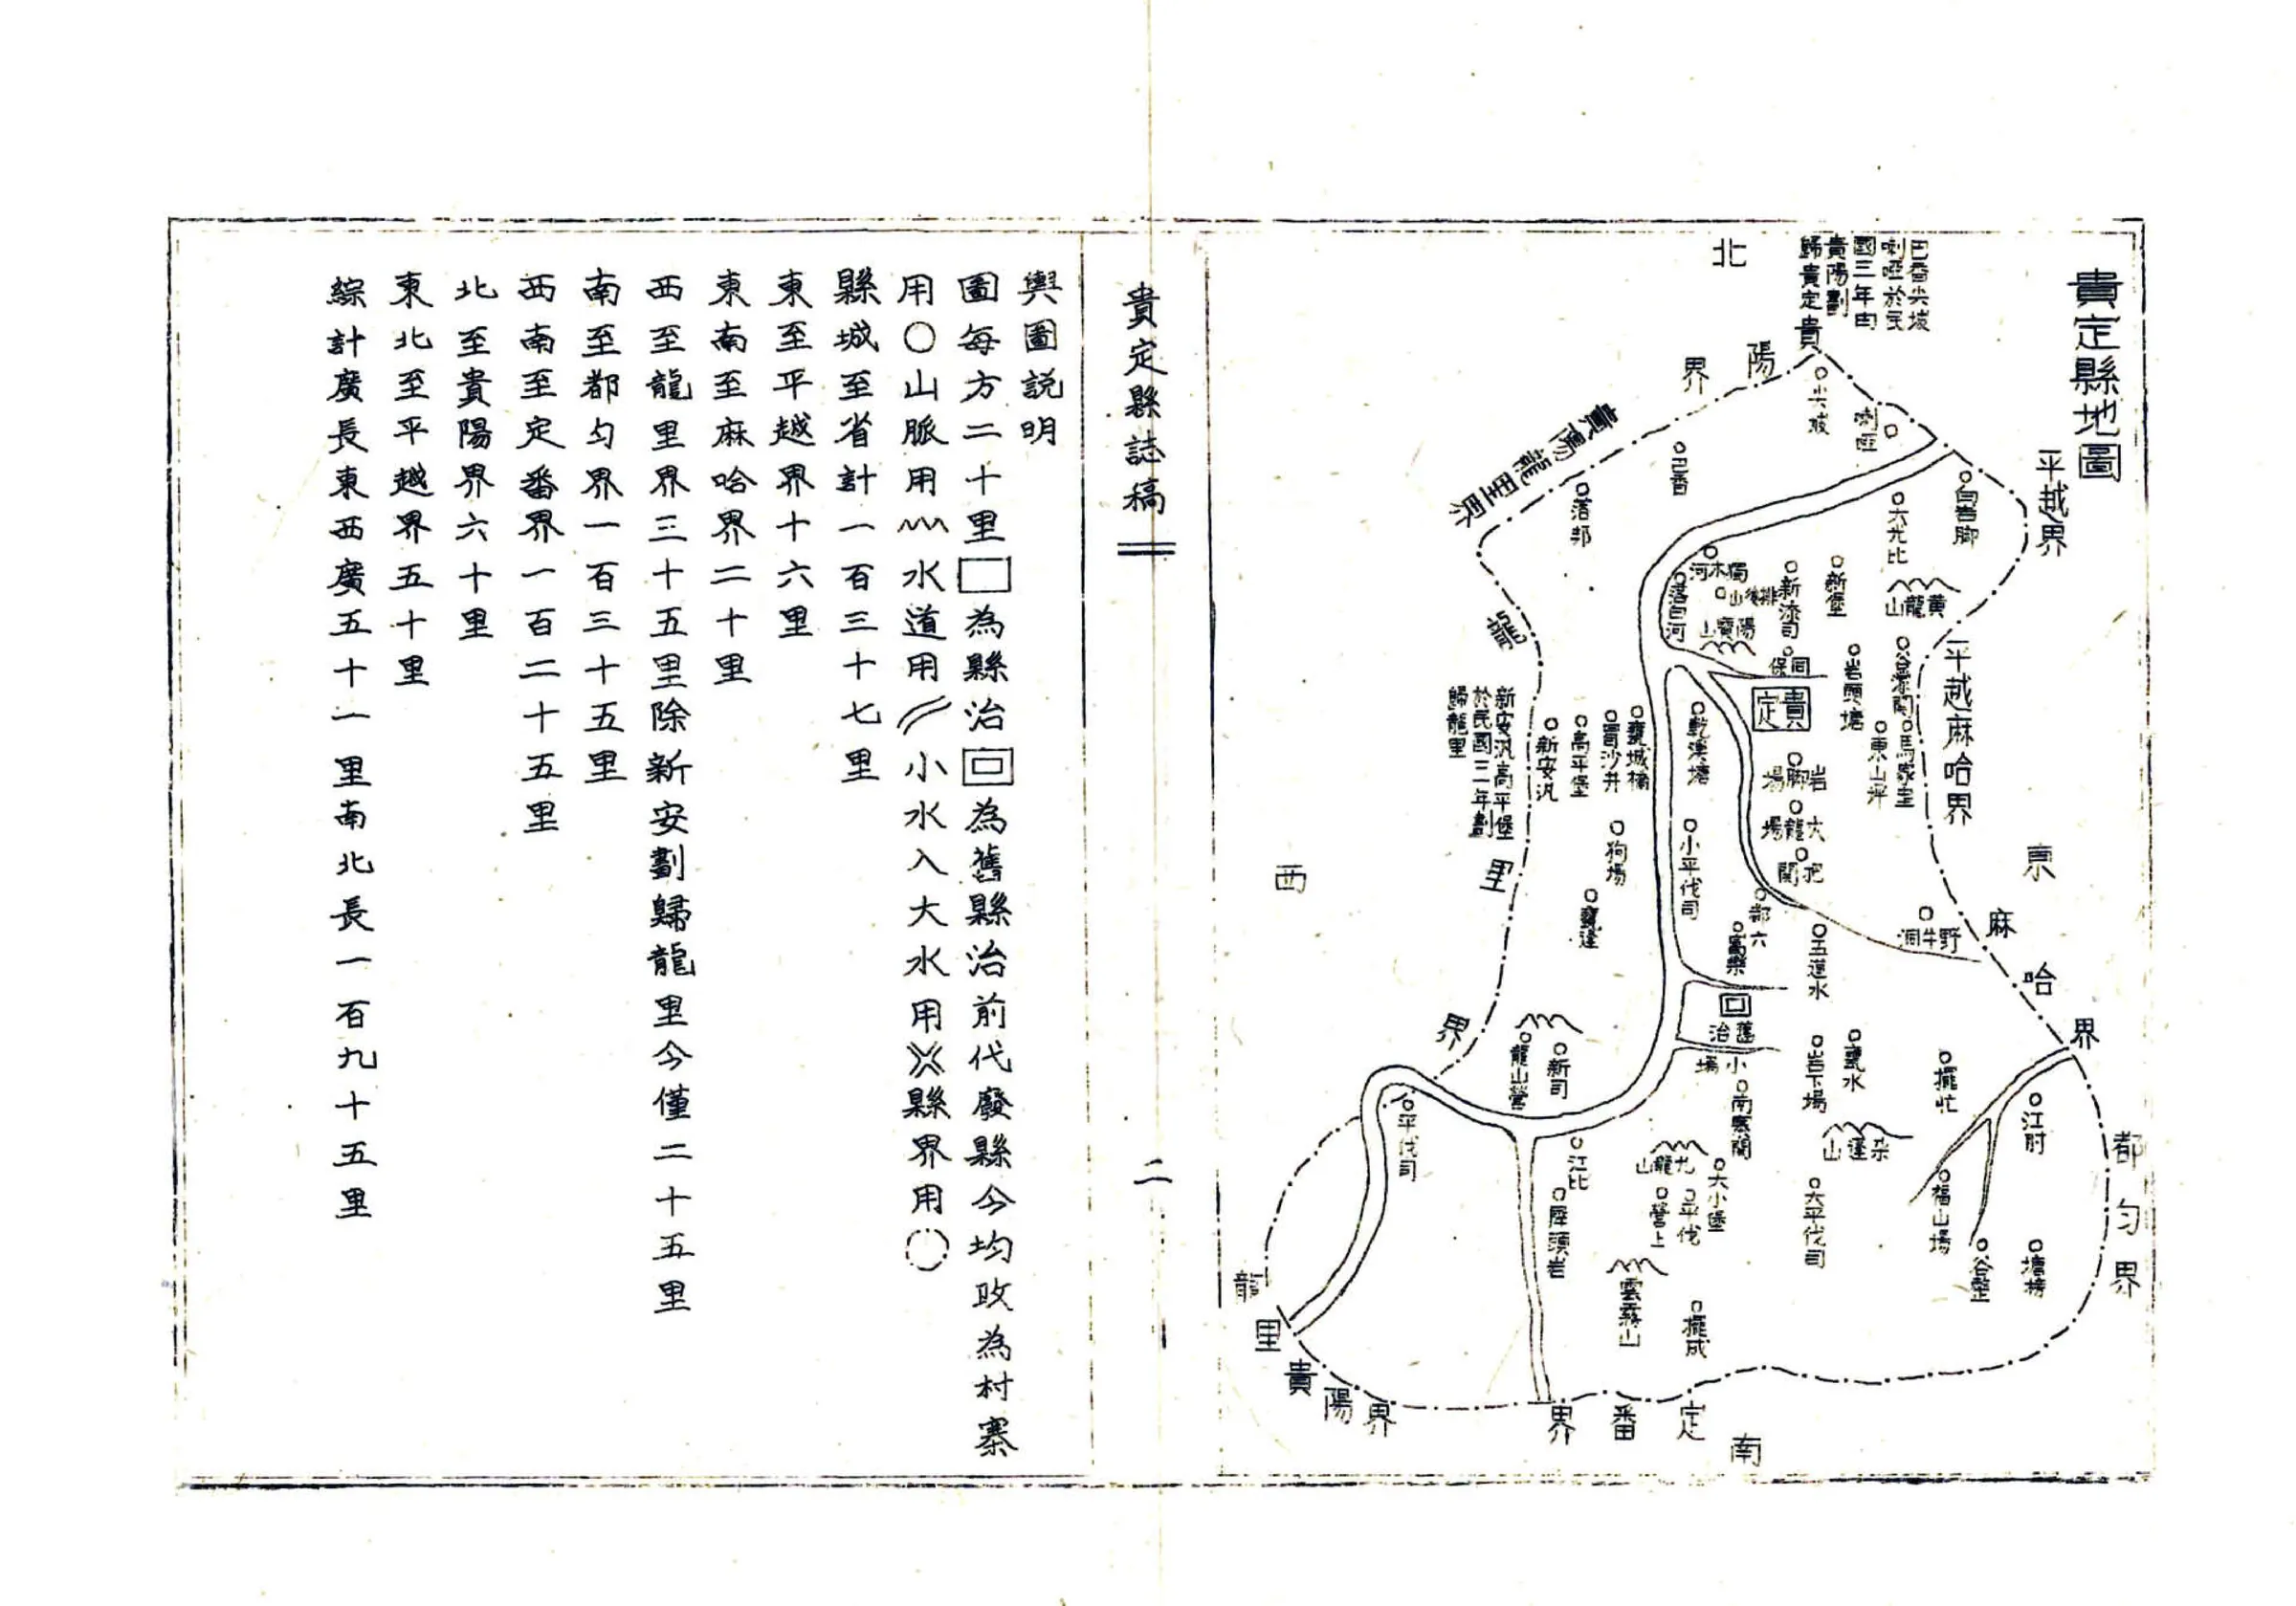 貴定縣地圖
北
巴香尖坡
喇啞於民
國三年由
貴陽劃
歸貴定
貴
陽
界
貴陽龍里界
平越界
平越麻哈界
東
麻
哈
界
都
匀
界
南
定
番
界
貴
陽
界
龍
里
西
龍
里
界
新安汛高平堡
於民國三年劃
歸龍里
尖坡
喇啞
巴香
落邦
大光比
新堡
黃龍山
獨木河
落白河
新添司
陽寶山
貴定
岩頭塘
谷濛關
東山坪
乾溪塘
甕城橋
冒沙井
高平堡
新安汛
岩脚場
大龍場
把關
小平伐司
狗場
都六
野牛洞
五道水
舊治
小場
岩下場
甕水
擺忙
江肘
龍山營
新司
平伐司
江比
犀頭岩
九龍山
大小堡
平伐
營上
大平伐司
福山場
雲霧山
擺成
貴定縣誌稿
二
輿圖説明
圖每方二十里□為縣治回為舊縣治前代廢縣今均改為村寨
用〇山脈用水道用小水入大水用縣界用
縣城至省計一百三十七里
東至平越界十六里
東南至麻哈界二十里
西至龍里界三十五里除新安劃歸龍里今僅二十五里
南至都匀界一百三十五里
西南至定番界一百二十五里
北至貴陽界六十里
東北至平越界五十里
綜計廣長東西廣五十一里南北長一百九十五里